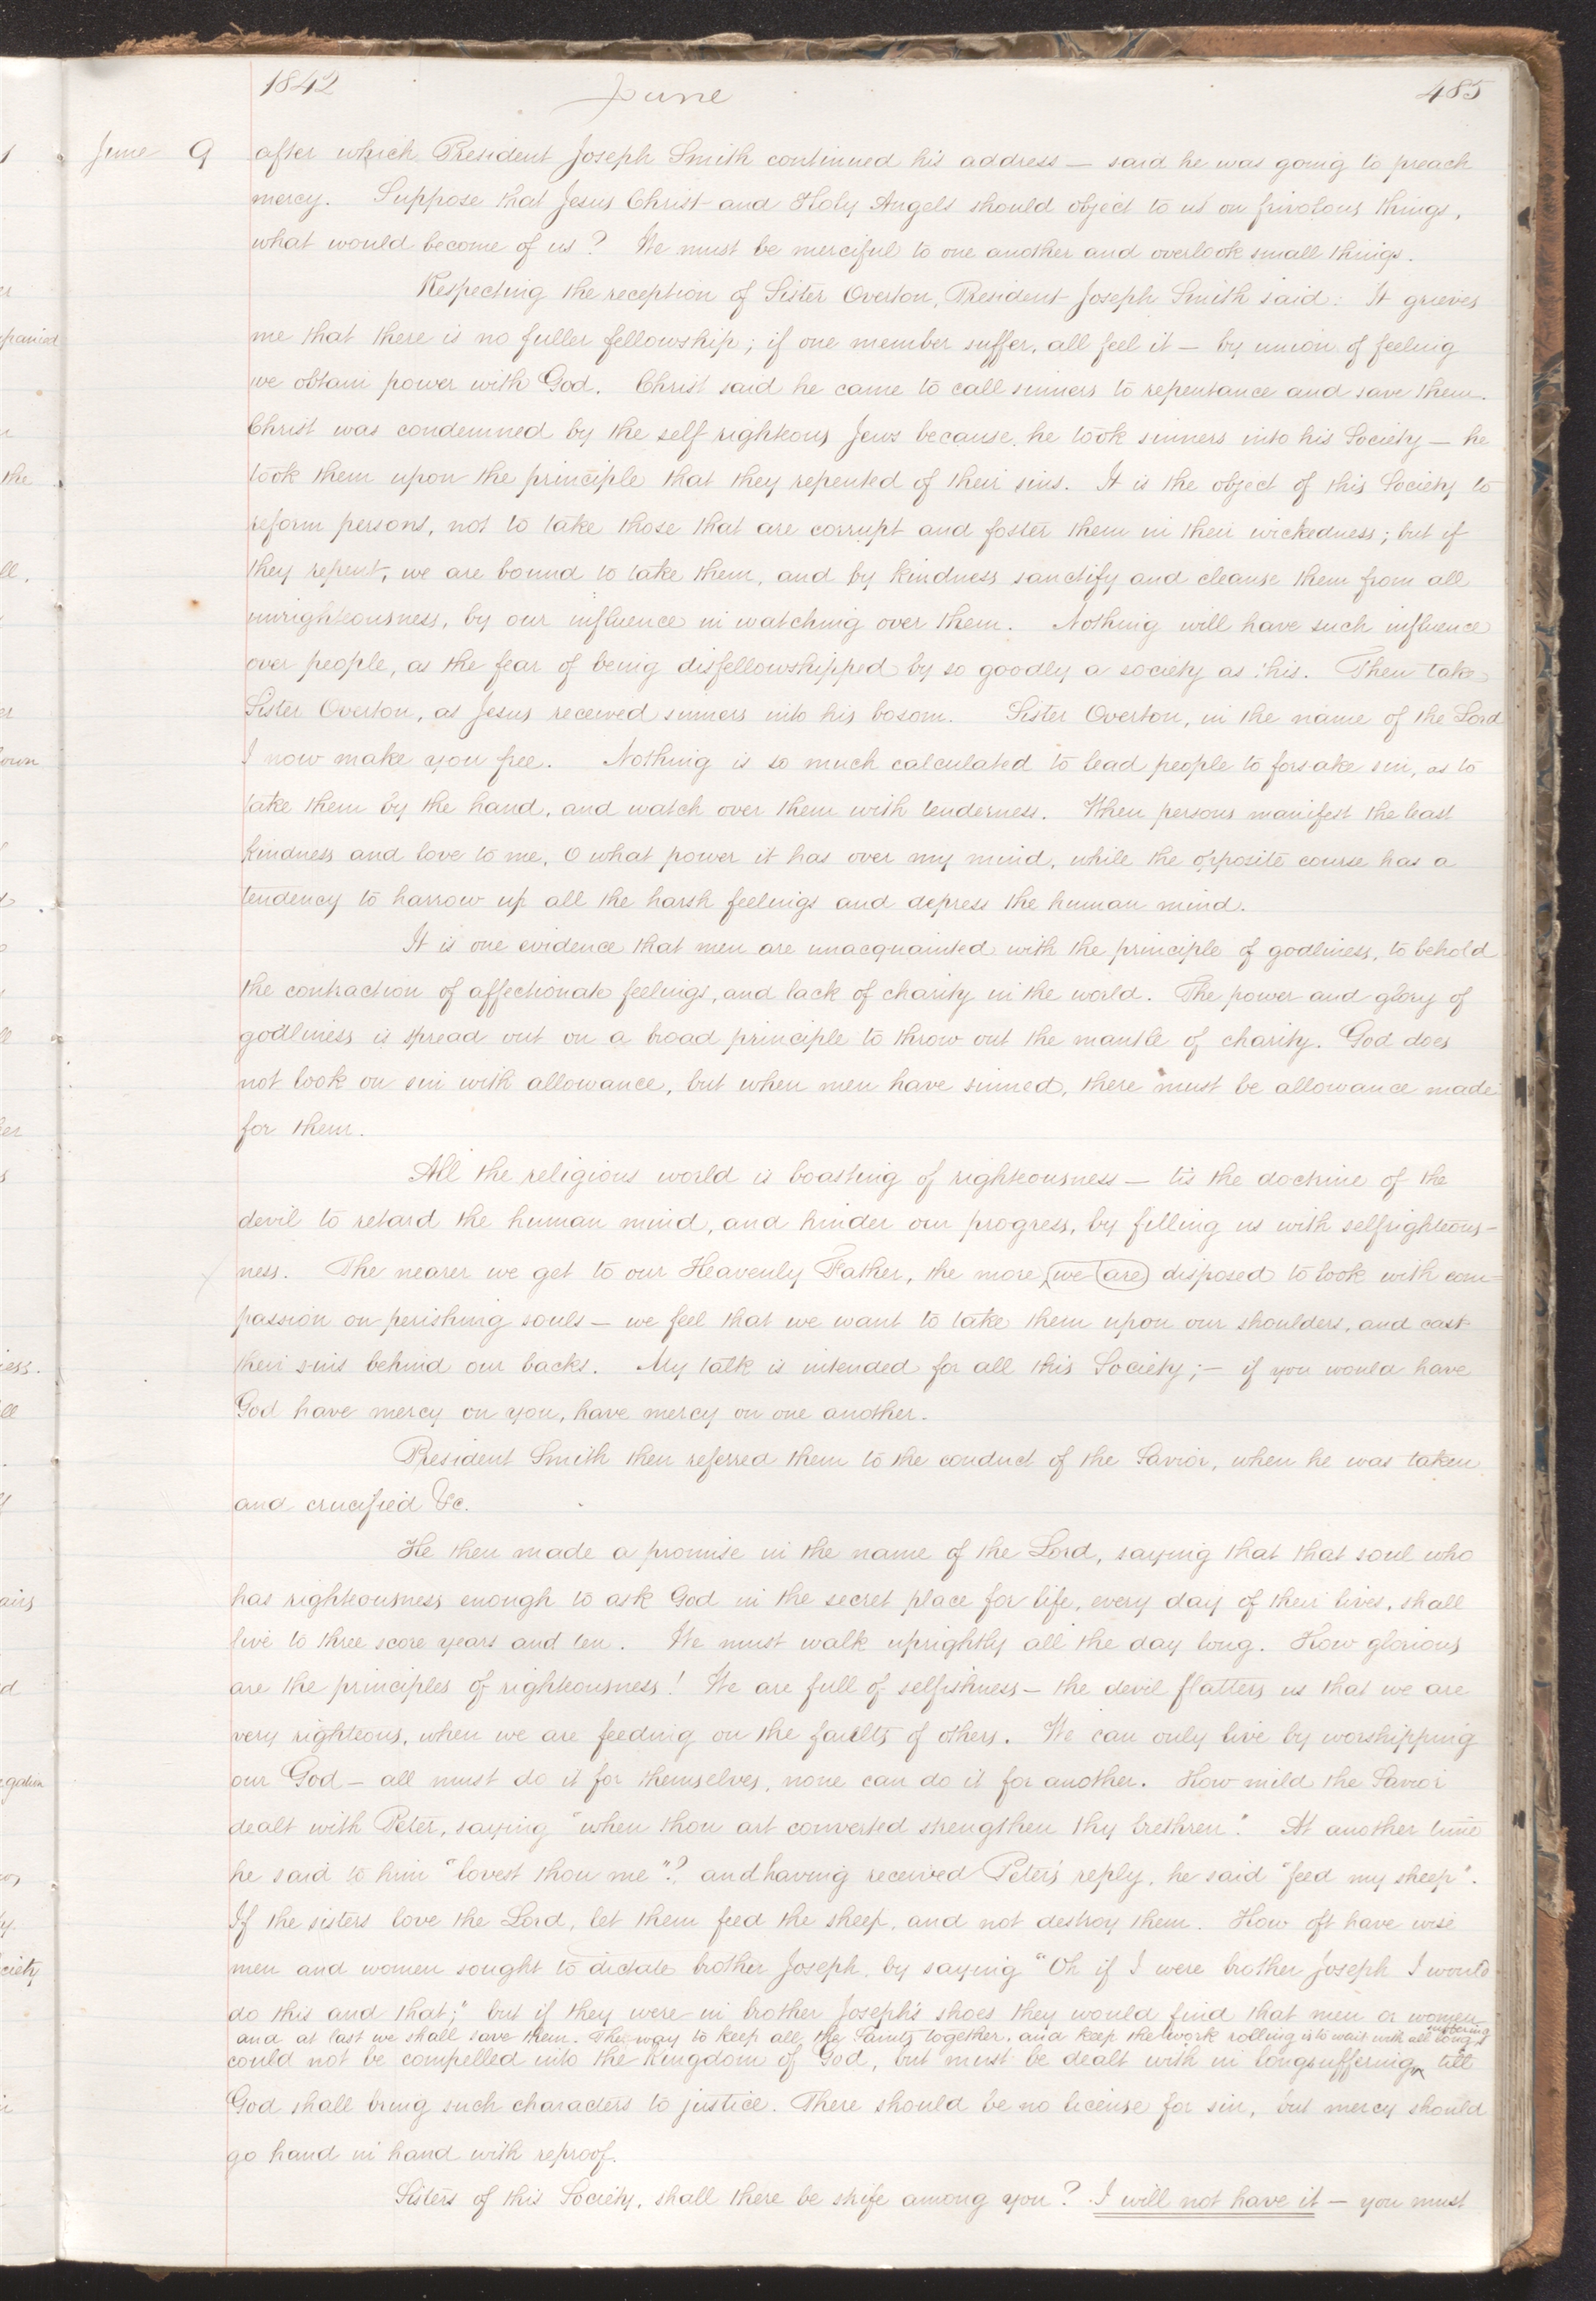 1842 June 485
June 9 after which President Joseph Smith continued his address — said he was going to preach
mercy. Suppose that Jesus Christ and Holy Angels should object to us on frivolous things,
what would become of us? We must be merciful to one another and overlook small things.
Respecting the reception of Sister Overton, President Joseph Smith said: It grieves
me that there is no fuller fellowship; if one member suffer, all feel it — by union of feeling
we obtain power with God. Christ said he came to call sinners to repentance and save them.
Christ was condemned by the self righteous Jews because he took sinners into his Society — he
took them upon the principle that they repented of their sins. It is the object of this Society to
reform persons, not to take those that are corrupt and foster them in their wickedness; but if
they repent, we are bound to take them, and by kindness sanctify and cleanse them from all
unrighteousness, by our influence in watching over them. Nothing will have such influence
over people, as the fear of being disfellowshipped by so goodly a society as this. Then take
Sister Overton, as Jesus received sinners into his bosom. Sister Overton, in the name of the Lord
I now make you free. Nothing is so much calculated to lead people to forsake sin, as to
take them by the hand, and watch over them with tenderness. When persons manifest the least
kindness and love to me, O what power it has over my mind, while the opposite course has a
tendency to harrow up all the harsh feelings and depress the human mind.
It is one evidence that men are unacquainted with the principle of godliness, to behold
the contraction of affectionate feelings, and lack of charity in the world. The power and glory of
godliness is spread out on a broad principle to throw out the mantle of charity. God does
not look on sin with allowance, but when men have sinned, there must be allowance made
for them.
All the religious world is boasting of righteousness — tis the doctrine of the
devil to retard the human mind, and hinder our progress, by filling us with selfrighteous-
ness. The nearer we get to our Heavenly Father, the more we are disposed to look with com-
passion on perishing souls — we feel that we want to take them upon our shoulders, and cast
their sins behind our backs. My talk is intended for all this Society; — if you would have
God have mercy on you, have mercy on one another.
President Smith then referred them to the conduct of the Savior, when he was taken
and crucified &c.
He then made a promise in the name of the Lord, saying that that soul who
has righteousness enough to ask God in the secret place for life, every day of their lives, shall
live to three score years and ten. We must walk uprightly all the day long. How glorious
are the principles of righteousness! We are full of selfishness — the devil flatters us that we are
very righteous, when we are feeding on the faults of others. We can only live by worshipping
our God — all must do it for themselves, none can do it for another. How mild the Savior
dealt with Peter, saying "when thou art converted strengthen thy brethren". At another time
he said to him "lovest thou me"? and having received Peter's reply, he said "feed my sheep".
If the sisters love the Lord, let them feed the sheep, and not destroy them. How oft have wise
men and women sought to dictate brother Joseph, by saying "Oh if I were brother Joseph I would
do this and that;" but if they were in brother Joseph's shoes they would find that men or women
and at last we shall save them. The way to keep all the Saints together, and keep the work rolling is to wait with all long suffering
could not be compelled into the Kingdom of God, but must be dealt with in longsuffering till
God shall bring such characters to justice. There should be no license for sin, but mercy should
go hand in hand with reproof.
Sisters of this Society, shall there be strife among you? I will not have it — you must